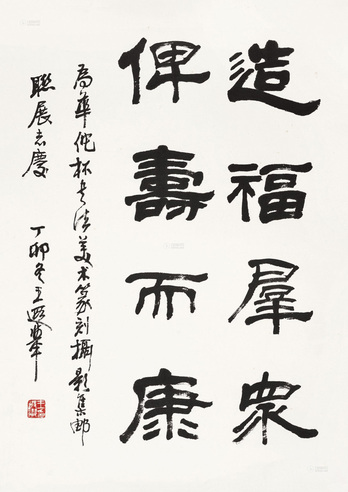 造福群眾
俾壽而康
為華佗杯書法美术篆刻攝影集邮
聯展志慶
丁卯冬王遐舉